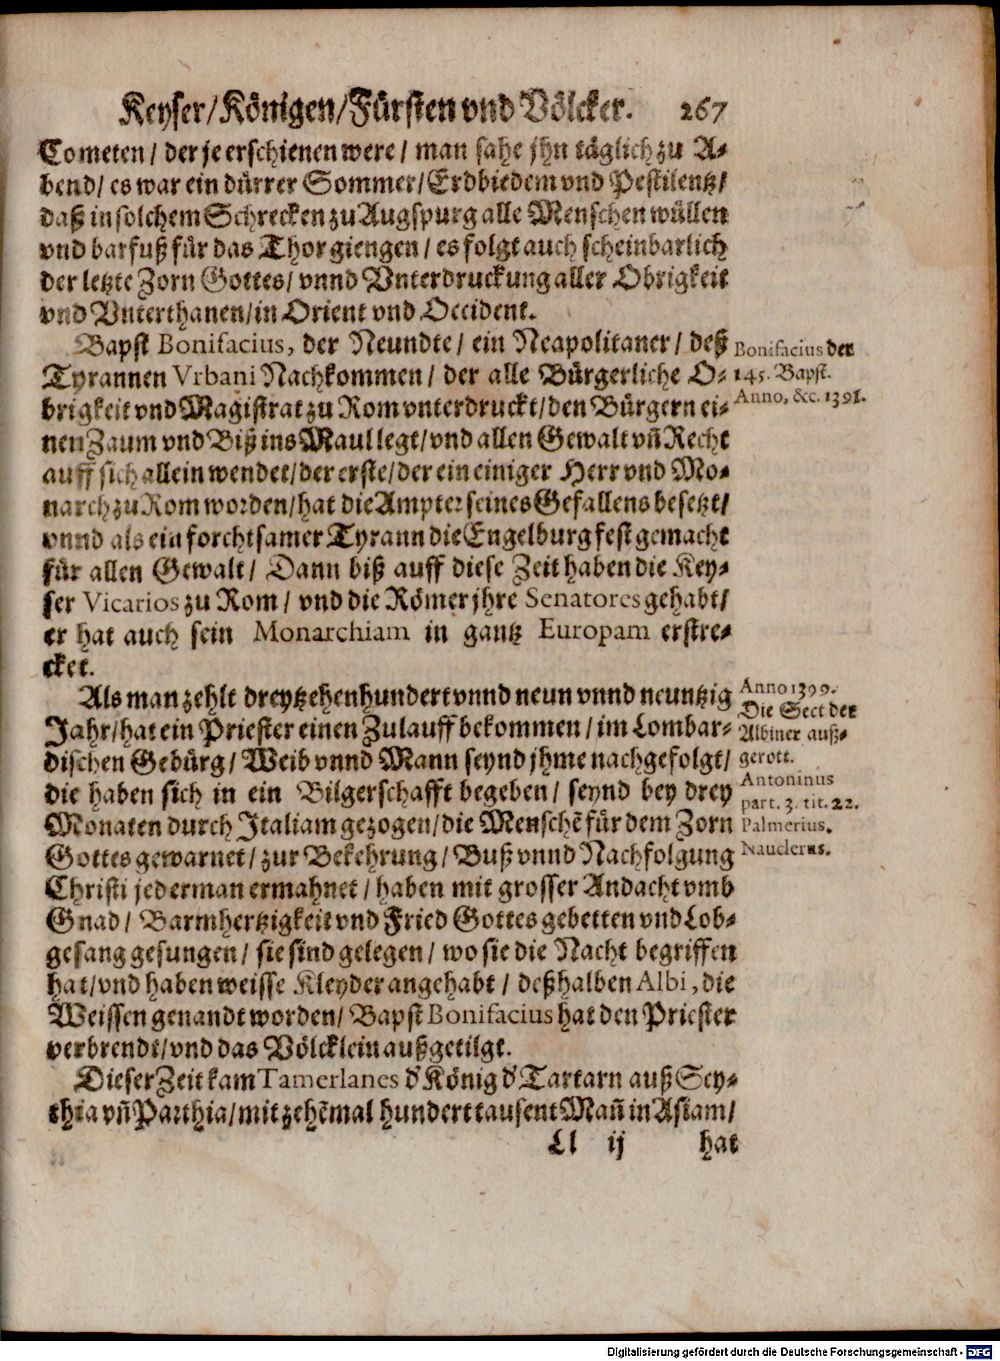 Keyser/Königen/Fürsten vnd Völcker. 267
Cometen/ der je erschienen were/ man sahe jhn täglich zu A-
bend/ es war ein dürrer Sommer/ Erdbiedem vnd Pestilentz/
daß in solchem Schrecken zu Augspurg alle Menschen wüllen
vnd barfuß für das Thor giengen/ es folgt auch scheinbarlich
der letzte Zorn Gottes/ vnnd Vnterdruckung aller Obrigkeit
vnd Vnterthanen/ in Orient vnd Occident.
Bapst Bonifacius, der Neundte/ ein Neapolitaner/ deß
Tyrannen Vrbani Nachkommen/ der alle Bürgerliche O-
brigkeit vnd Magistrat zu Rom vnterdruckt/ den Bürgern ei-
nen Zaum vnd Biß ins Maul legt/ vnd allen Gewalt vñ Recht
auff sich allein wendet/ der erste/ der ein einiger Herr vnd Mo-
narch zu Rom worden/ hat die Ampter seines Gefallens besetzt/
vnnd als ein forchtsamer Tyrann die Engelburg fest gemacht
für allen Gewalt/ Dann biß auff diese Zeit haben die Key-
ser Vicarios zu Rom/ vnd die Römer jhre Senatores gehabt/
er hat auch sein Monarchiam in gantz Europam erstre-
cket.
Bonifacius der
145. Bapst.
Anno, &c. 1391.
Als man zehlt dreytzehenhundert vnnd neun vnnd neuntzig
Jahr/ hat ein Priester einen Zulauff bekommen/ im Lombar-
dischen Gebürg/ Weib vnnd Mann seynd jhme nachgefolgt/
die haben sich in ein Bilgerschafft begeben/ seynd bey drey
Monaten durch Italiam gezogen/ die Menschẽ für dem Zorn
Gottes gewarnet/ zur Bekehrung/ Buß vnnd Nachfolgung
Christi jederman ermahnet/ haben mit grosser Andacht vmb
Gnad/ Barmhertzigkeit vnd Fried Gottes gebetten vnd Lob-
gesang gesungen/ sie sind gelegen/ wo sie die Nacht begriffen
hat/ vnd haben weisse Kleyder angehabt/ deßhalben Albi, die
Weissen genandt worden/ Bapst Bonifacius hat den Priester
verbrendt/ vnd das Völcklein außgetilgt.
Anno 1399.
Die Sect der
Albiner auß-
gerott.
Antoninus
part. 3. tit. 22.
Palmerius.
Nauclerus.
Dieser Zeit kam Tamerlanes d' König d' Tartarn auß Scy-
thia vñ Parthia/ mit zehẽmal hundert tausent Mañ in Asiam/
Ll ij hat
Digitalisierung gefördert durch die Deutsche Forschungsgemeinschaft - DFG